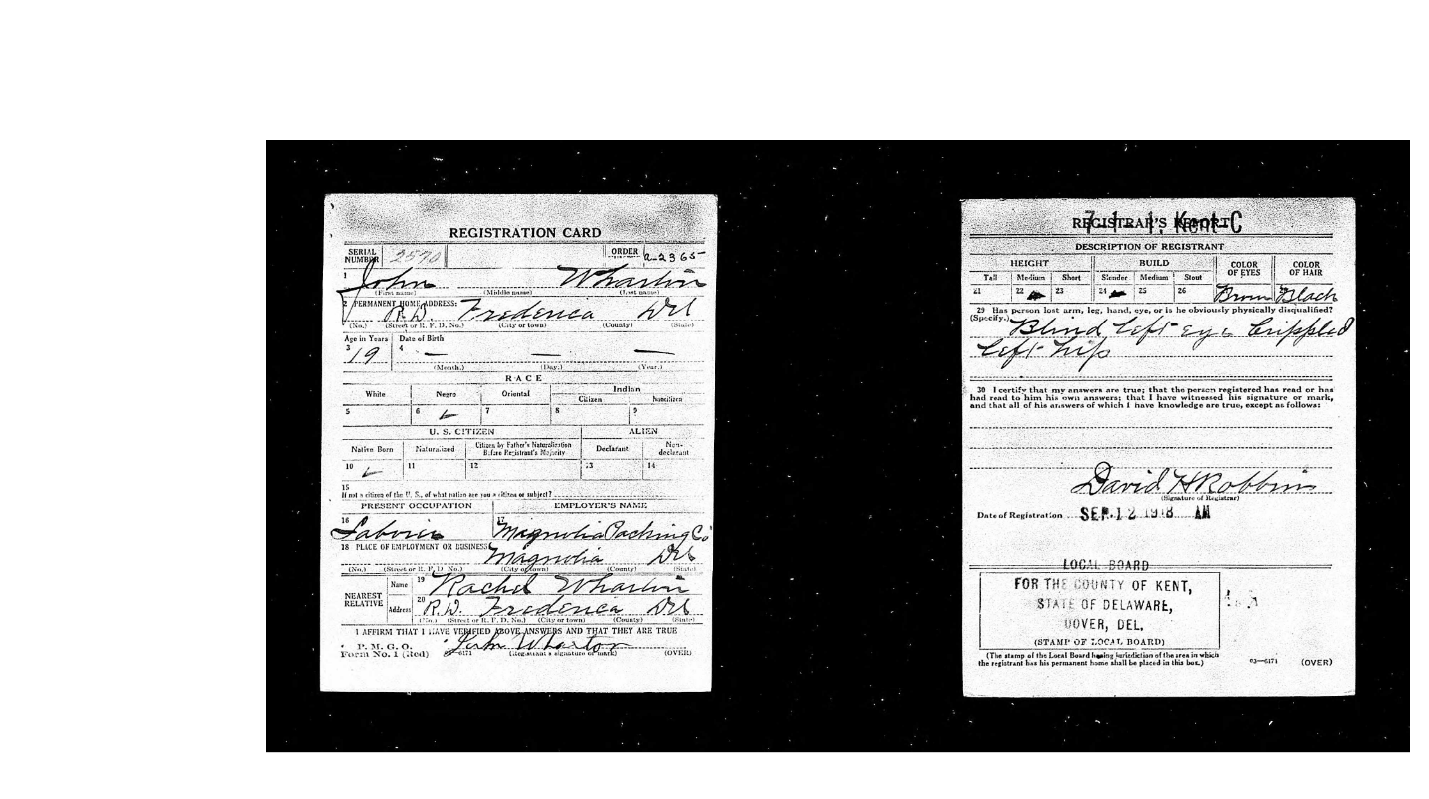 REGISTRATION CARD
SERIAL NUMBER 2570 ORDER a2365
1 John Wharton
(First name) (Middle name) (Last name)
2 PERMANENT HOME ADDRESS:
R.D. Frederica Del
(No.) (Street or R. F. D. No.) (City or town) (County) (State)
Age in Years Date of Birth
3 19 4 — — —
(Month.) (Day.) (Year.)
RACE
White Negro Oriental Indian
Citizen Noncitizen
5 6 ✓ 7 8 9
U. S. CITIZEN ALIEN
Native Born Naturalized Citizen by Father's Naturalization Before Registrant's Majority Declarant Non-declarant
10 ✓ 11 12 13 14
15
If not a citizen of the U. S., of what nation are you a citizen or subject?
PRESENT OCCUPATION EMPLOYER'S NAME
16 Laborer 17 Magnolia Packing Co
18 PLACE OF EMPLOYMENT OR BUSINESS
Magnolia Del
(No.) (Street or R. F. D. No.) (City or town) (County) (State)
NEAREST RELATIVE
Name 19 Rachel Wharton
Address 20 R.D. Frederica Del
(No.) (Street or R. F. D. No.) (City or town) (County) (State)
I AFFIRM THAT I HAVE VERIFIED ABOVE ANSWERS AND THAT THEY ARE TRUE
P. M. G. O.
Form No. 1 (Red) John Wharton
(Registrant's signature or mark) (OVER)
REGISTRAR'S REPORT
7-1-1. Kent C
DESCRIPTION OF REGISTRANT
HEIGHT BUILD COLOR OF EYES COLOR OF HAIR
Tall Medium Short Slender Medium Stout
21 22 23 24 25 26 Brown Black
29 Has person lost arm, leg, hand, eye, or is he obviously physically disqualified?
(Specify.) Blind Left eye Crippled
Left hip
30 I certify that my answers are true; that the person registered has read or has
had read to him his own answers; that I have witnessed his signature or mark,
and that all of his answers of which I have knowledge are true, except as follows:
David H Robbins
(Signature of Registrar)
Date of Registration SEP 12 1918 AM
LOCAL BOARD
FOR THE COUNTY OF KENT,
STATE OF DELAWARE,
DOVER, DEL.
(STAMP OF LOCAL BOARD)
(The stamp of the Local Board having jurisdiction of the area in which
the registrant has his permanent home shall be placed in this box.) 03—6171 (OVER)